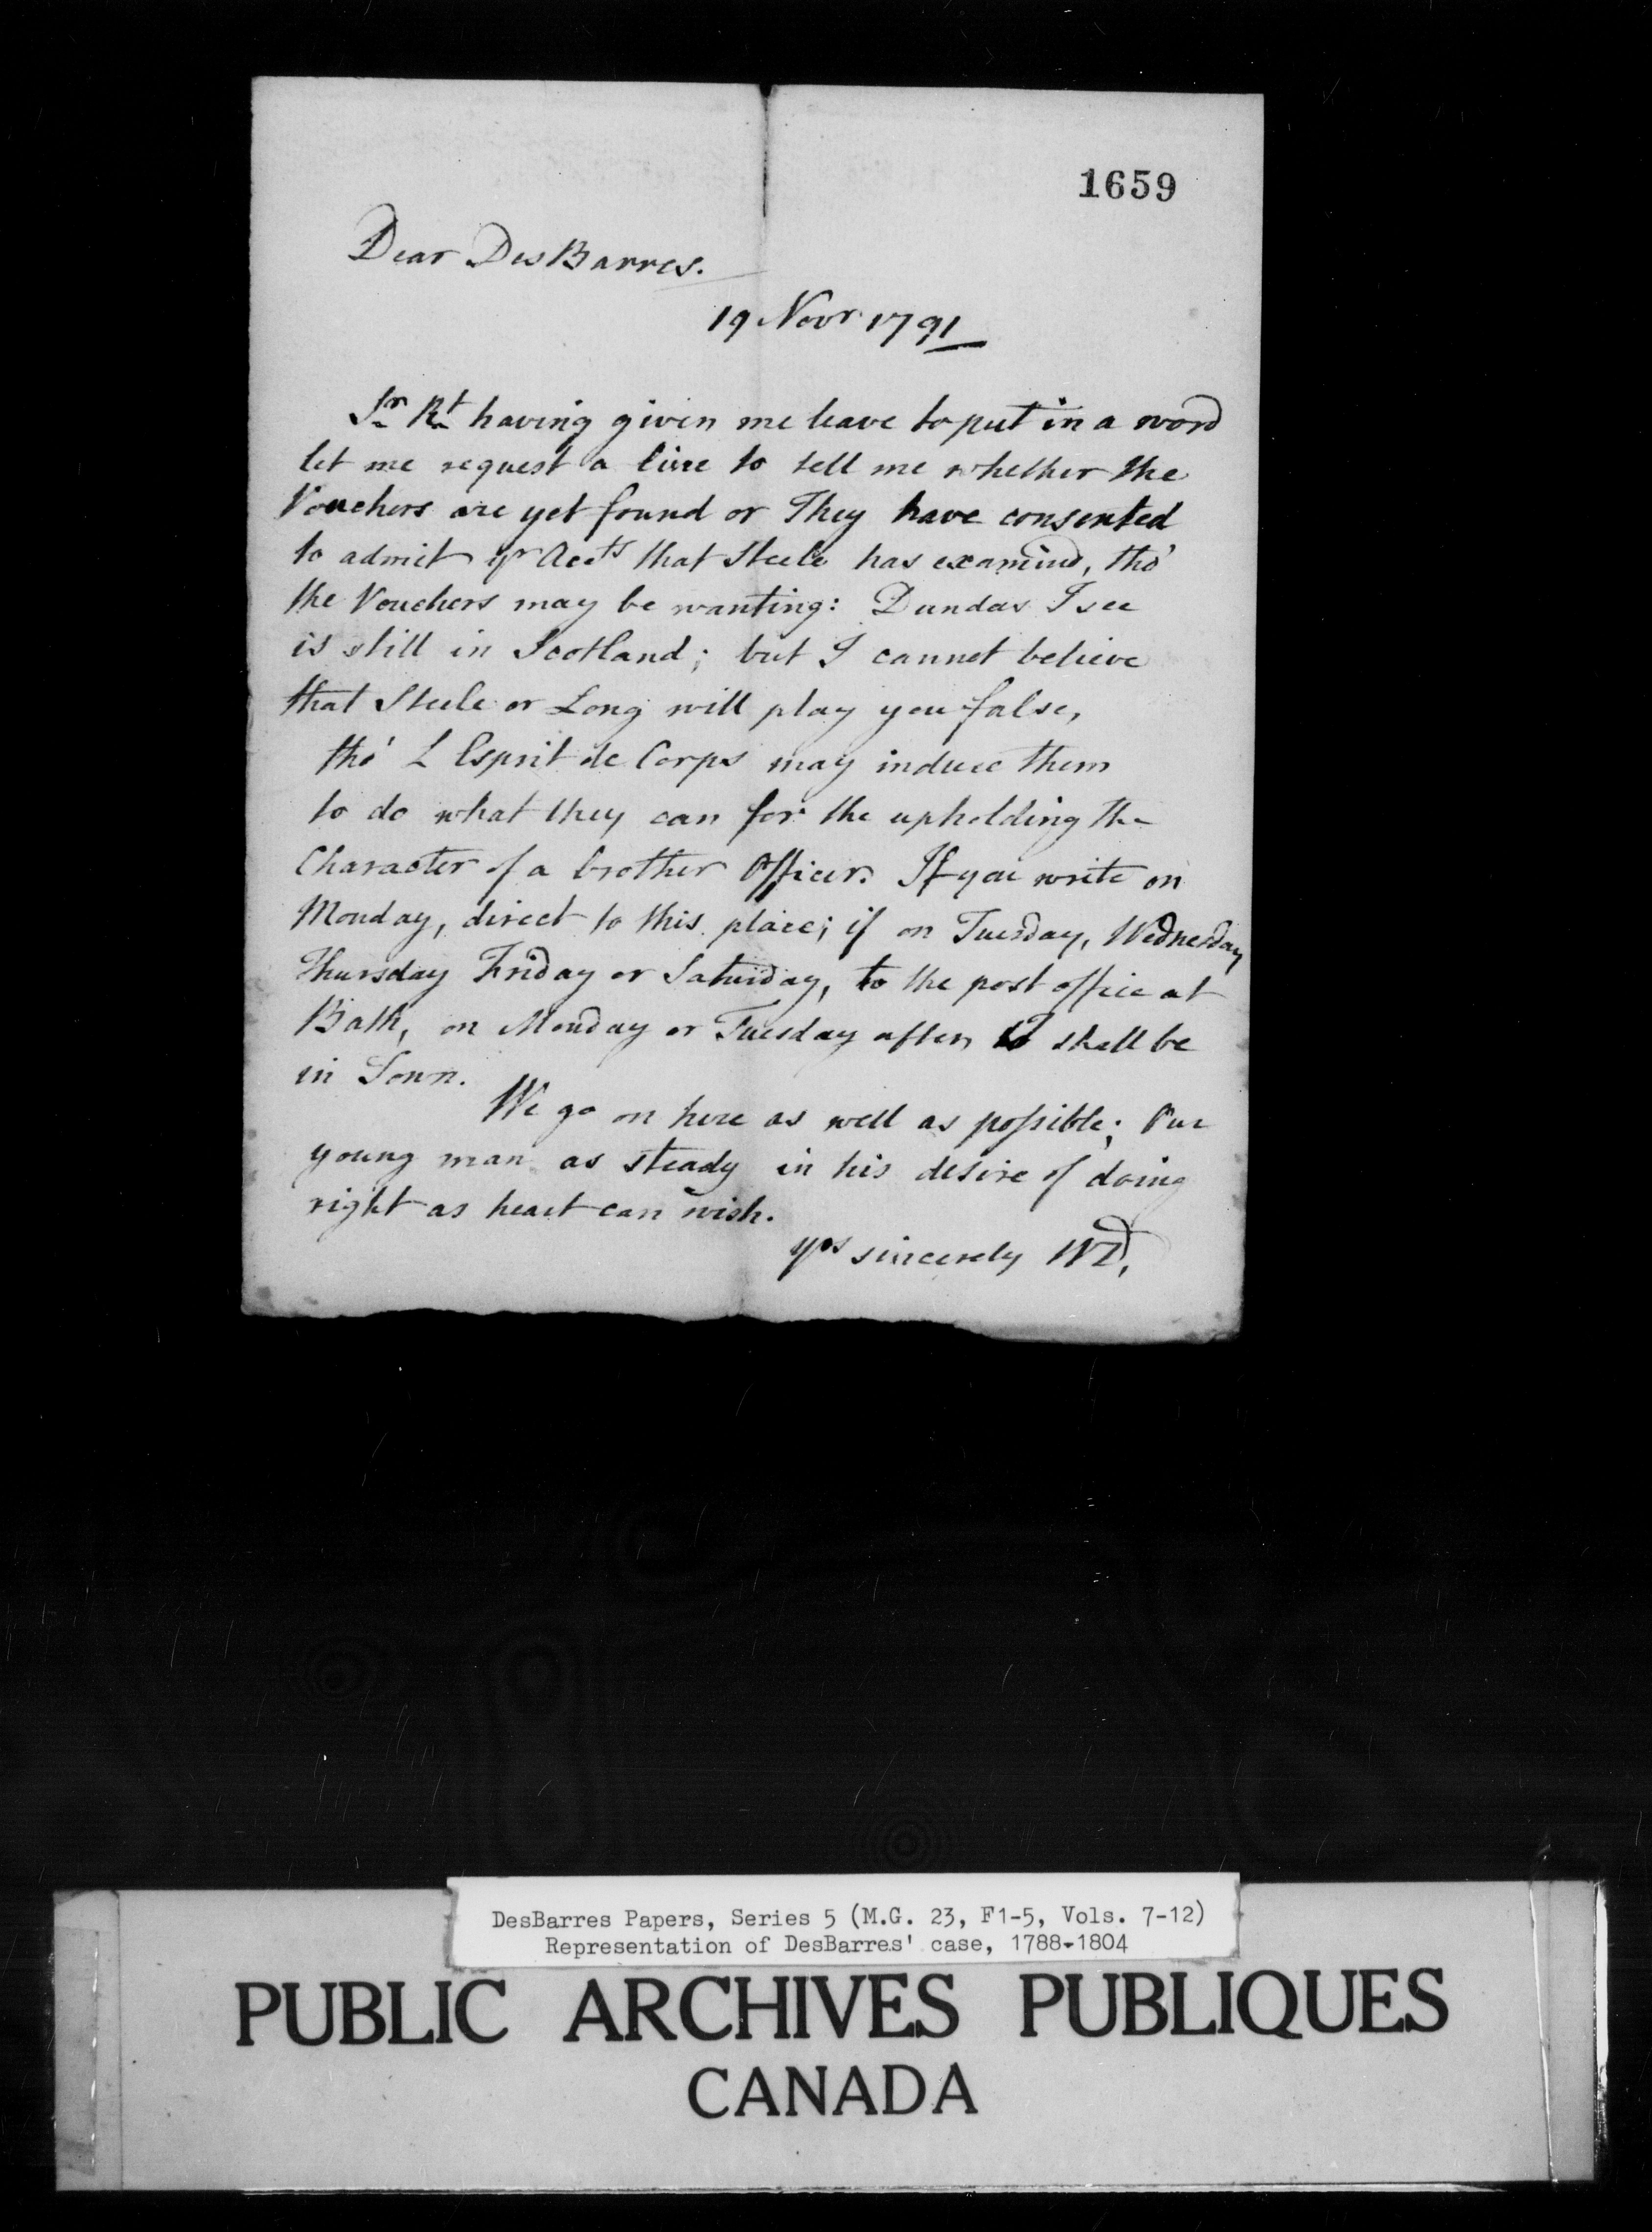 1659
Dear DesBarres.
19 Novr 1791
Sr Rt having given me leave to put in a word
let me request a line to tell me whether the
Vouchers are yet found or They have consented
to admit yr Accts that Steele has examind, tho'
the Vouchers may be wanting: Dundas I see
is still in Scotland; but I cannot believe
that Steele or Long will play you false,
tho' L Esprit de Corps may induce them
to do what they can for the upholding the
Character of a brother Officer. If you write on
Monday, direct to this place; if on Tuesday, Wednesday
Thursday Friday or Saturday, to the post office at
Bath, on Monday or Tuesday after I shall be
in Town.
We go on here as well as possible; Our
young man as steady in his desire of doing
right as heart can wish.
yrs sincerely WD,
DesBarres Papers, Series 5 (M.G. 23, F1-5, Vols. 7-12)
Representation of DesBarres' case, 1788-1804
PUBLIC ARCHIVES PUBLIQUES
CANADA